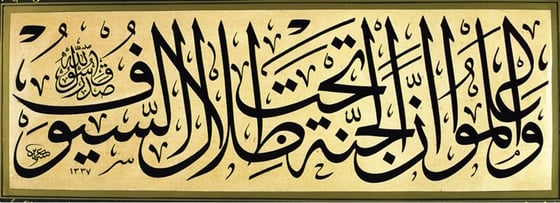 واعلموا ان الجنة تحت ظلال السيوف
صدق رسول الله
١٣٣٧